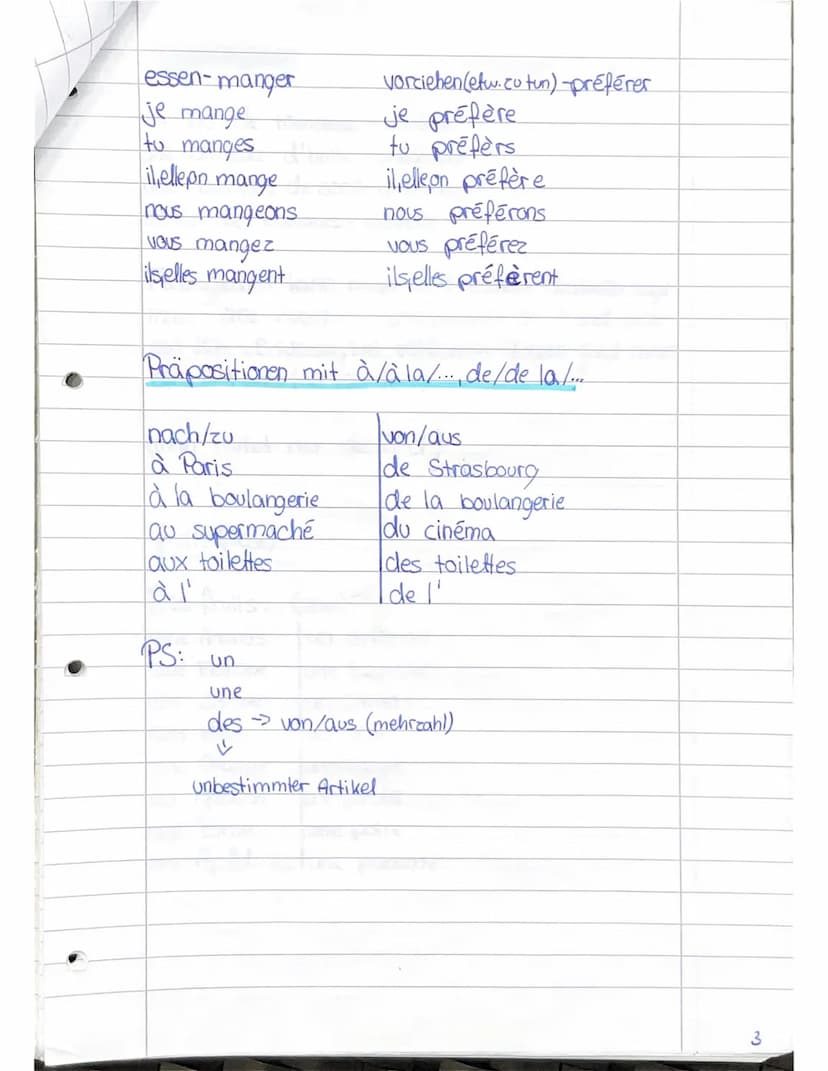 essen-manger vorziehen(etw. zu tun)-préférer
je mange je préfère
tu manges tu préfèrs
il,elle,on mange il,elle,on préfère
nous mangeons nous préférons
vous mangez vous préférez
ils,elles mangent ils,elles préfèrent
Präpositionen mit à/à la/..., de/de la/...
nach/zu von/aus
à Paris de Strasbourg
à la boulangerie de la boulangerie
au supermaché du cinéma
aux toilettes des toilettes
à l' de l'
PS: un
une
des -> von/aus (mehrzahl)
unbestimmter Artikel
3